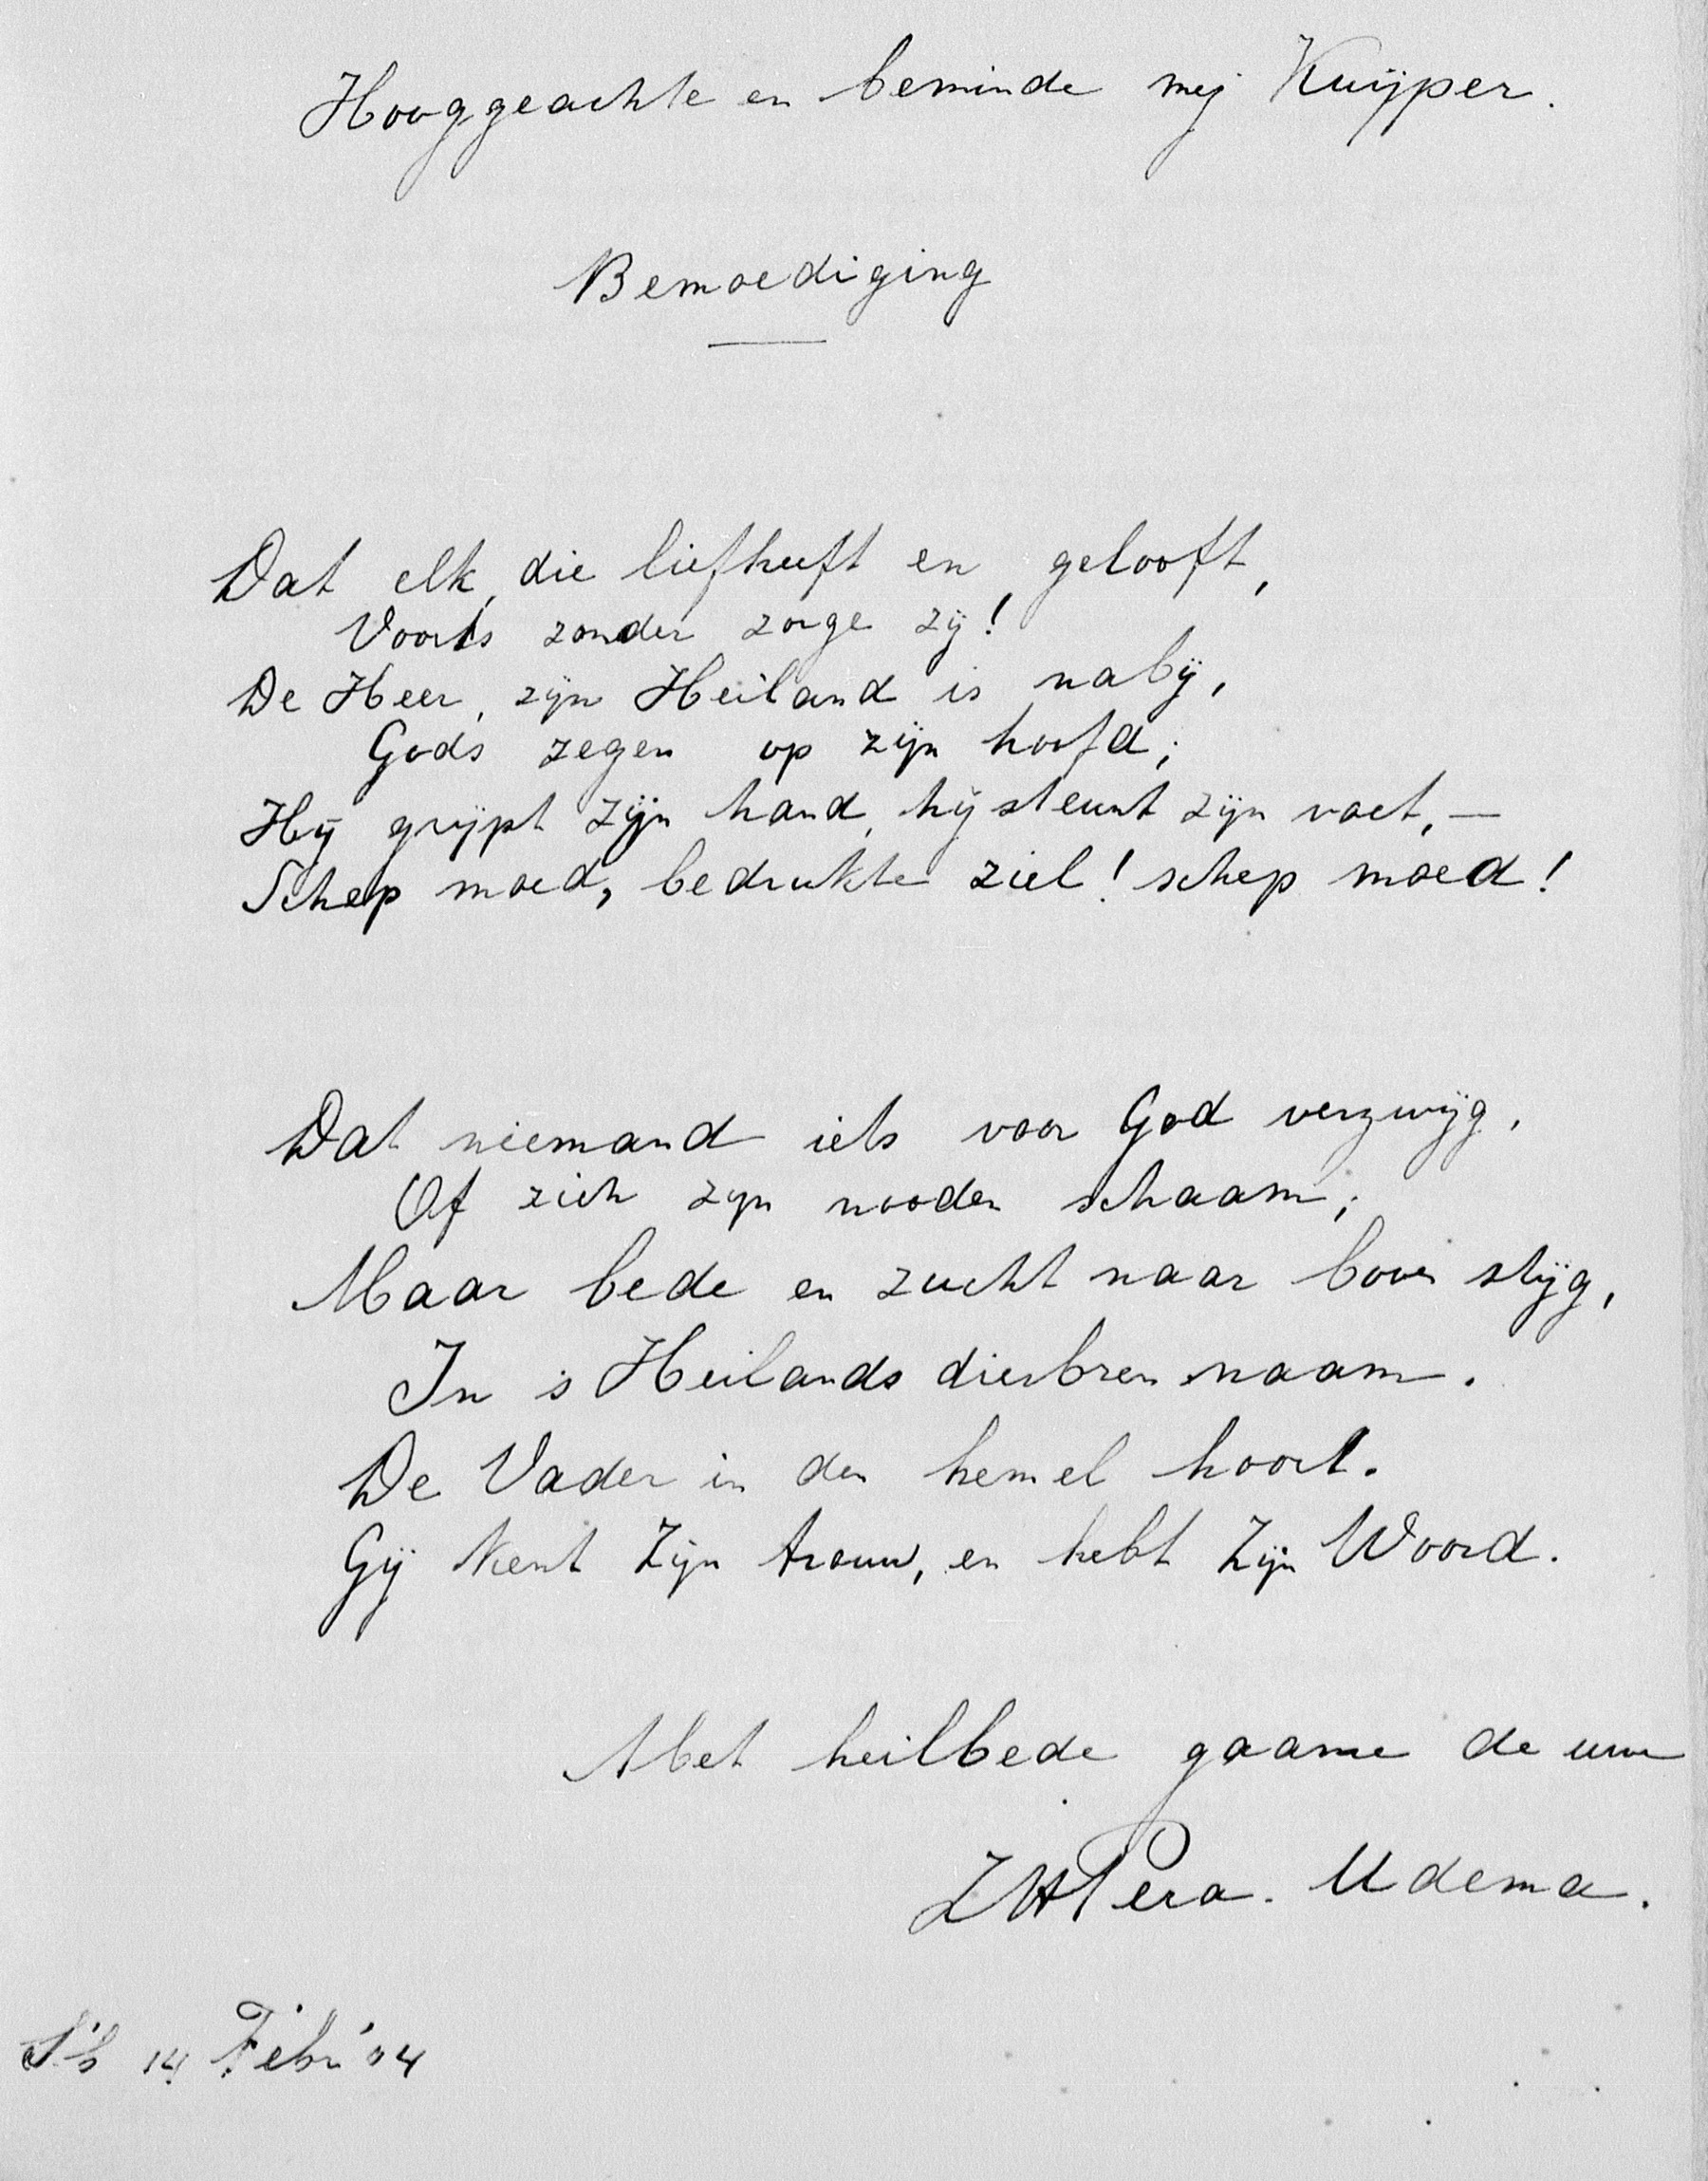 Hooggeachte en beminde mej Kuijper.
Bemoediging
Dat elk, die liefheeft en gelooft,
Voorts zonder zorge zij!
De Heer, zijn Heiland is nabij,
Gods zegen op zijn hoofd;
Hij grijpt zijn hand, hij steunt zijn voet, —
Schep moed, bedrukte ziel! schep moed!
Dat niemand iets voor God verzwijg,
Of zich zijn nooden schaam;
Maar bede en zucht naar boven stijg,
In 's Heilands dierbren naam.
De Vader in den hemel hoort.
Gij kent Zijn trouw, en hebt Zijn Woord.
Met heilbede gaarne de uwe
Pera. Udema.
14 Febr '04